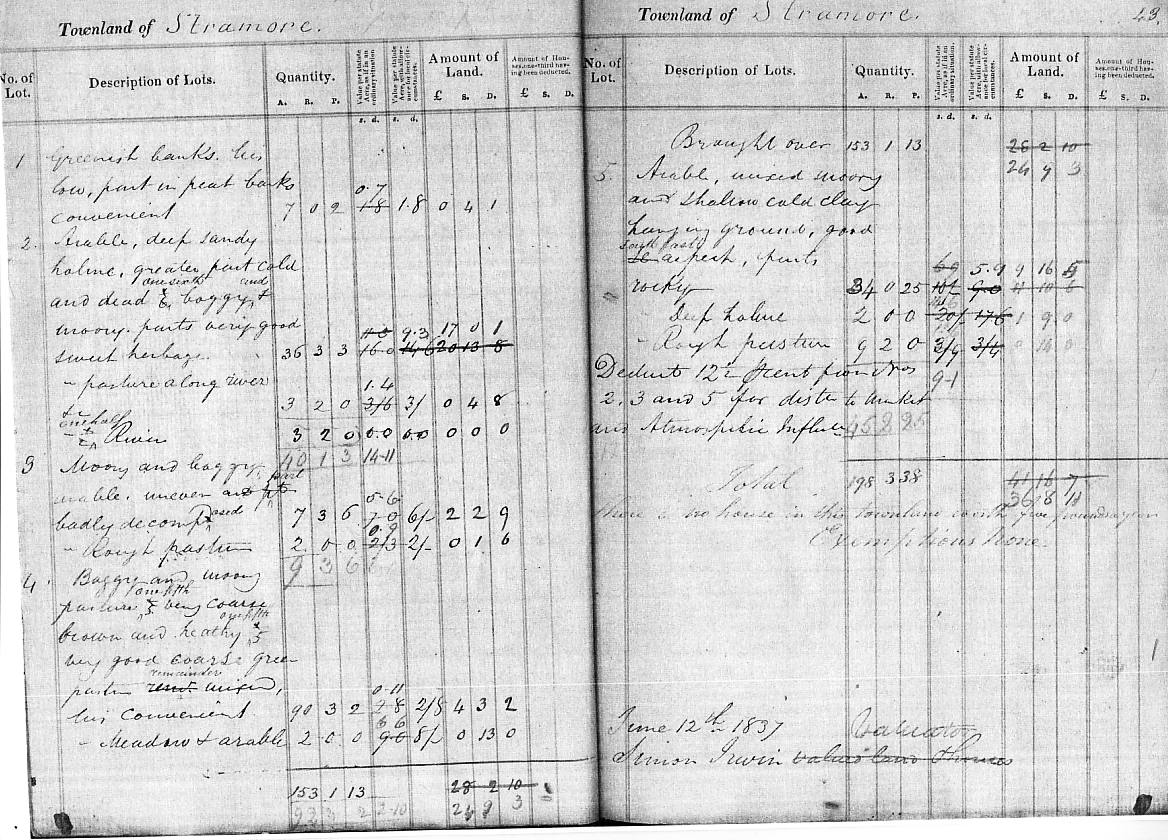 Townland of Stramore.
No. of Lot. Description of Lots. Quantity. Value per statute Acre, as if in an ordinary situation Value per statute Acre, with allowance for local circumstances Amount of Land. Amount of Houses, one-third having been deducted.
A. R. P. s. d. s. d. £ S. D. £ S. D.
1 Greenish banks. lies
low, part in peat banks 0.7
convenient 7 0 2 1.8 1.8 0 4 1
2. Arable, deep sandy
holme, greater part cold
one sixth and
and dead & boggy, &
moory. parts very good 9.3 17 0 1
sweet herbage. 36 3 3 16 0 14 6 20 13 8
" pasture along river 1.4
3 2 0 3/6 3/ 0 4 8
one half
" River 3 2 0 0.0 0.0 0 0 0
40 1 3 14-11
3 Moory and boggy
part
arable. uneven and pt 5-6
badly decomposed 7 3 6 7 0 6/- 2 2 9
0.9
" Rough pasture 2 0 0 2/3 2/- 0 1 6
9 3 6
4. Boggy and moory
one fifth
pasture very coarse
one fifth
brown and heathy 5
very good coarse green
remainder
pasture mixed, 0-11
lies convenient. 90 3 2 2 8 2/8 4 3 2
6 6
" Meadow & arable 2 0 0 9 0 8/- 0 13 0
153 1 13 28 2 10
24 9 3
Townland of Stramore. 43.
No. of Lot. Description of Lots. Quantity. Value per statute Acre, as if in an ordinary situation Value per statute Acre, with allowance for local circumstances Amount of Land. Amount of Houses, one-third having been deducted.
A. R. P. s. d. s. d. £ S. D. £ S. D.
Brought over 153 1 13 28 2 10
24 9 3
5. Arable, mixed moory
and shallow cold clay
hanging ground, good
south east
aspect, parts 6 9 5.9 9 16 5
rocky 34 0 25 10/- 9.0 11 10 6
" Deep holme 2 0 0 20/- 17 6 1 9 0
" Rough pasture 9 2 0 3/9 3/4 0 14 0
Deduct 12½ ⅌ cent from Nos 9-1
2, 3 and 5 for dists to market
and Atmospheric Influence 45 2 25
Total 198 3 38 41 16 7
36 8 11
There is no house in this Townland worth five pounds a year
Exemptions None.
June 12th 1837 Valuator
Simon Irwin values land & houses